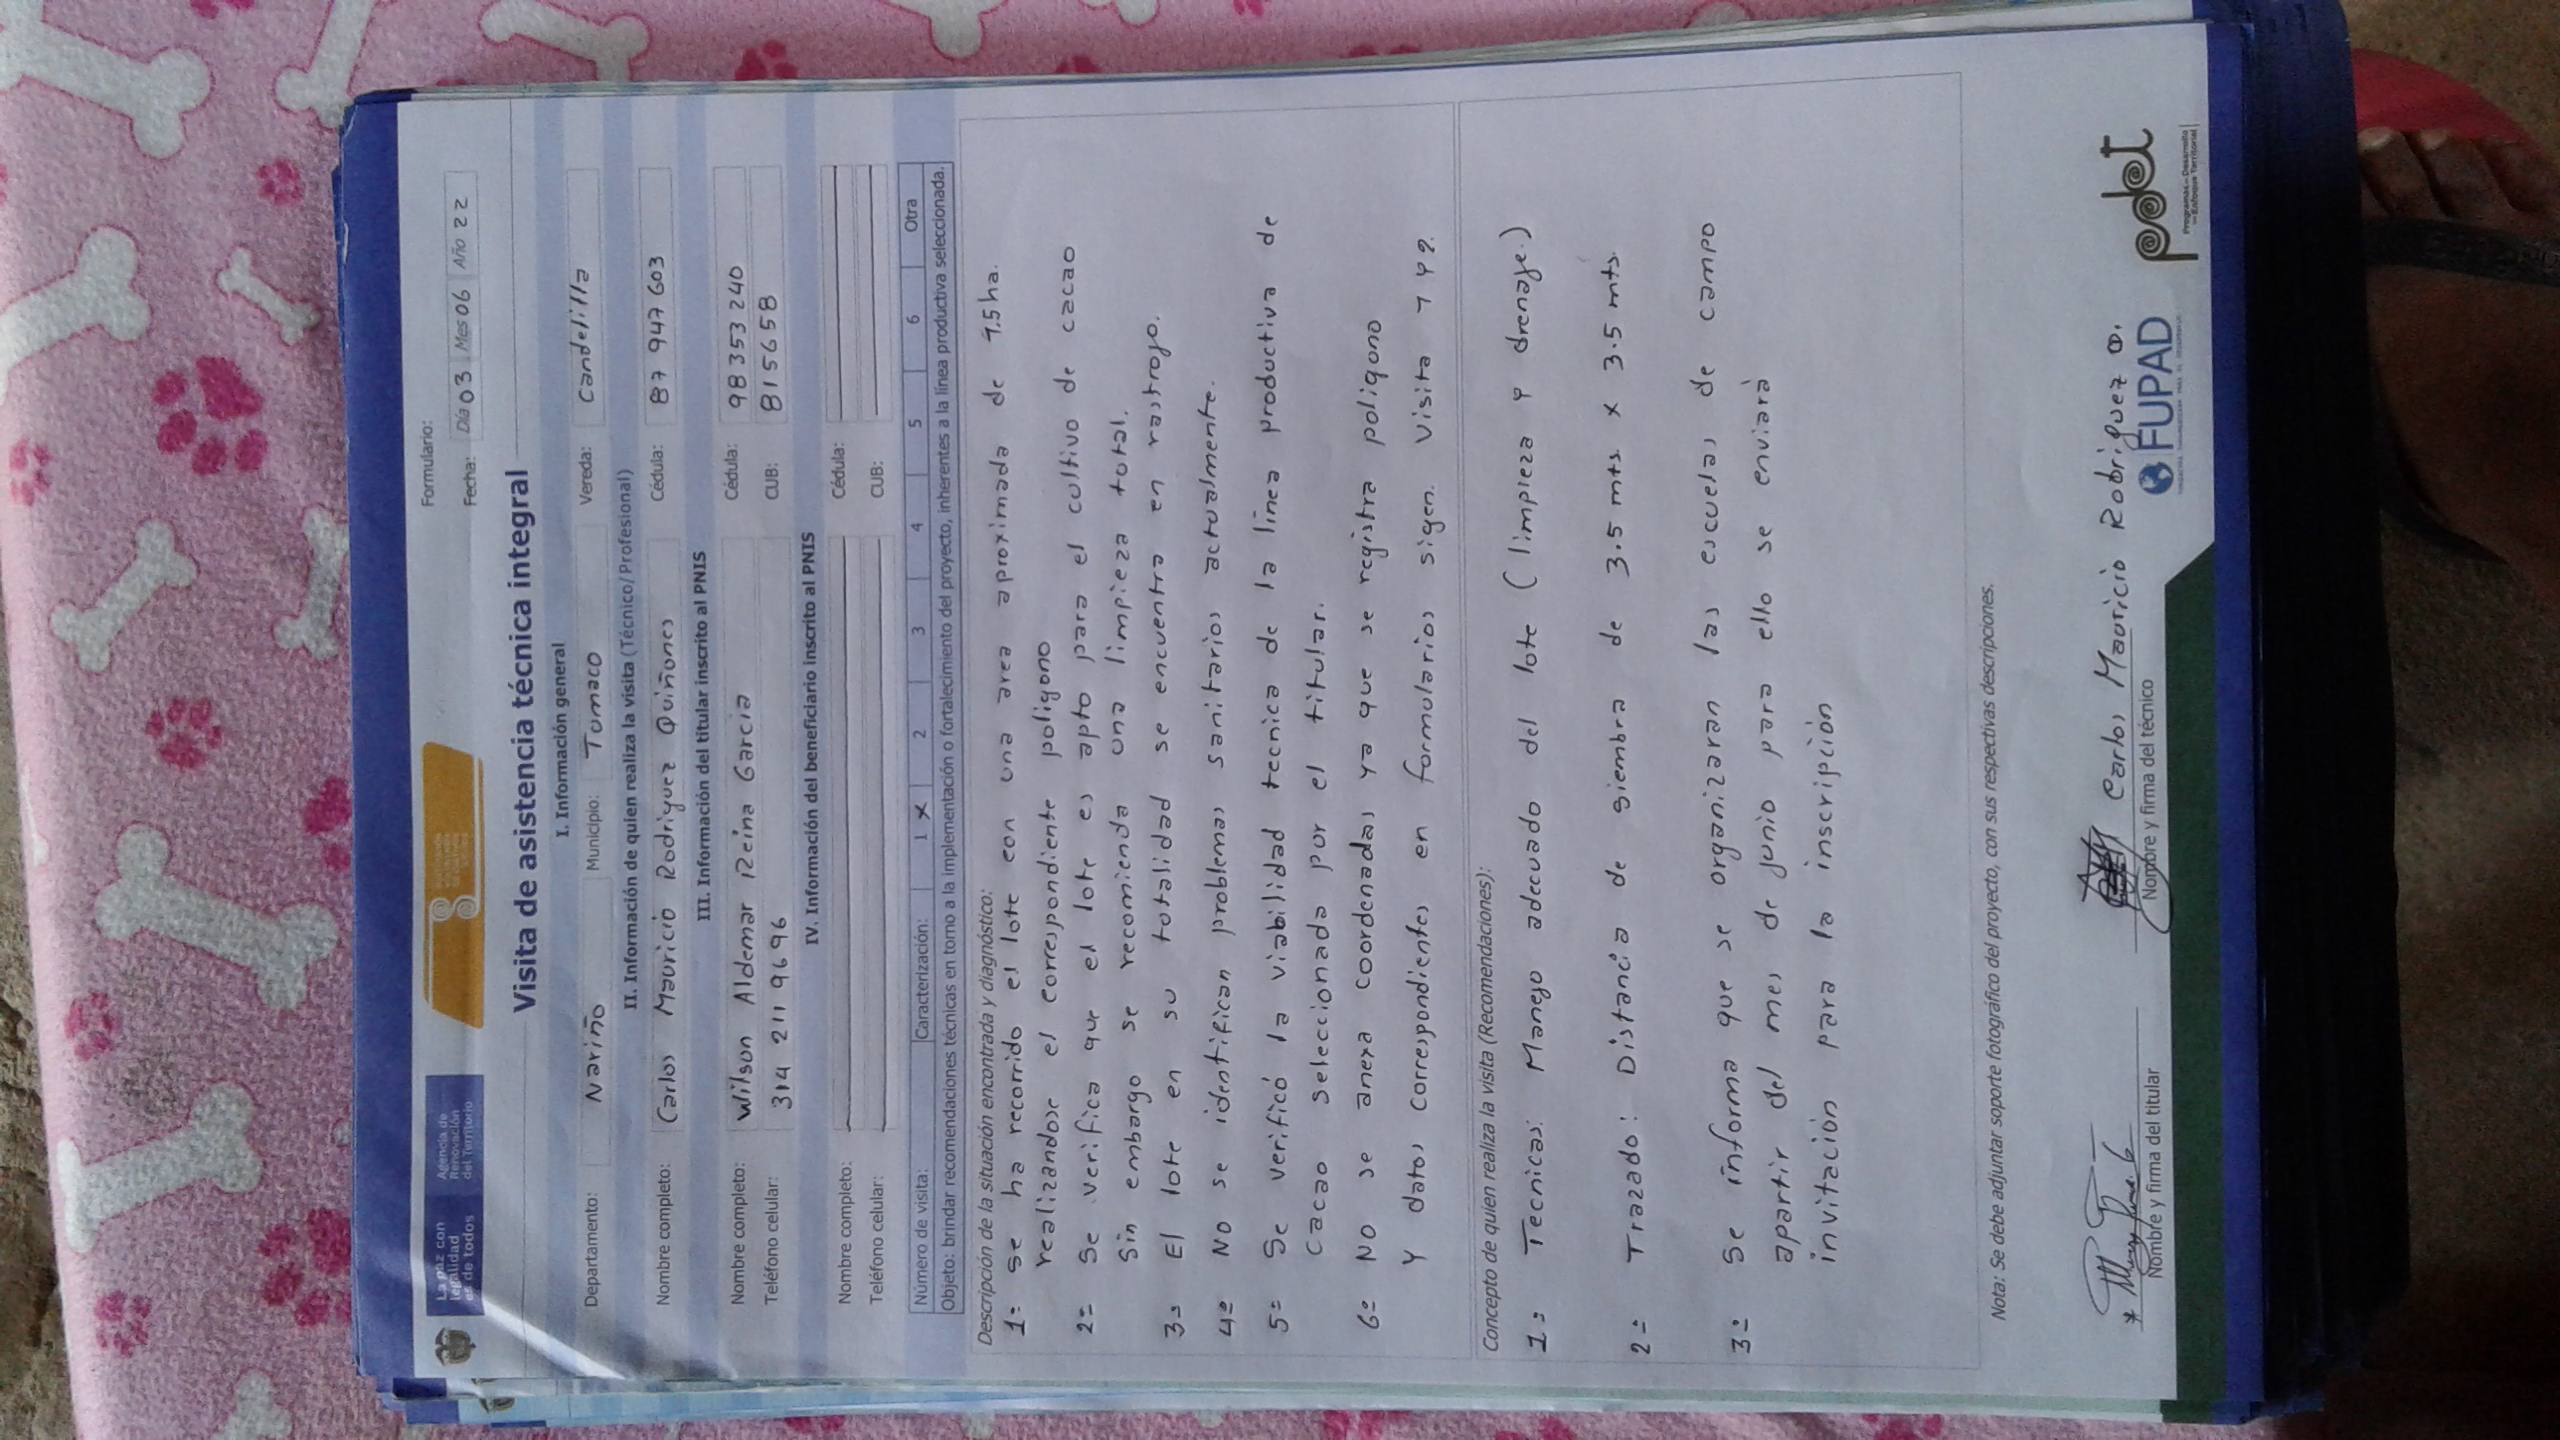 La paz con
legalidad
es de todos
Agencia de
Renovación
del Territorio
Formulario:
Fecha: Día 03 Mes 06 Año 22
Visita de asistencia técnica integral
I. Información general
Departamento: Nariño Municipio: Tumaco Vereda: Candelilla
II. Información de quien realiza la visita (Técnico/Profesional)
Nombre completo: Carlos Mauricio Rodriguez Quiñones Cédula: 87 947 603
III. Información del titular inscrito al PNIS
Nombre completo: Wilson Aldemar Reina Garcia Cédula: 98 353 240
Teléfono celular: 314 211 9696 CUB: 815658
IV. Información del beneficiario inscrito al PNIS
Nombre completo: Cédula:
Teléfono celular: CUB:
Número de visita: Caracterización: 1 X 2 3 4 5 6 Otra
Objeto: brindar recomendaciones técnicas en torno a la implementación o fortalecimiento del proyecto, inherentes a la línea productiva seleccionada.
Descripción de la situación encontrada y diagnóstico:
1= se ha recorrido el lote con una area aproximada de 1.5 ha.
realizandose el correspondiente poligono
2= Se verifica que el lote es apto para el cultivo de cacao
Sin embargo se recomienda una limpieza total.
3= El lote en su totalidad se encuentra en rastrojo.
4= No se identifican problemas sanitarios actualmente.
5= Se verificó la viabilidad tecnica de la linea productiva de
Cacao seleccionada por el titular.
6= No se anexa coordenadas ya que se registra poligono
Y datos correspondientes en formularios sigen. Visita 1 y 2.
Concepto de quien realiza la visita (Recomendaciones):
1= Tecnicas: Manejo adecuado del lote (limpieza y drenaje.)
2= Trazado: Distancia de siembra de 3.5 mts. x 3.5 mts.
3= Se informa que se organizaran las escuelas de campo
apartir del mes de junio para ello se enviará
invitación para la inscripción
Nota: Se debe adjuntar soporte fotográfico del proyecto, con sus respectivas descripciones.
Carlos Mauricio Rodriguez Q.
Nombre y firma del titular Nombre y firma del técnico
FUPAD
pdet
Programas de Desarrollo
con Enfoque Territorial